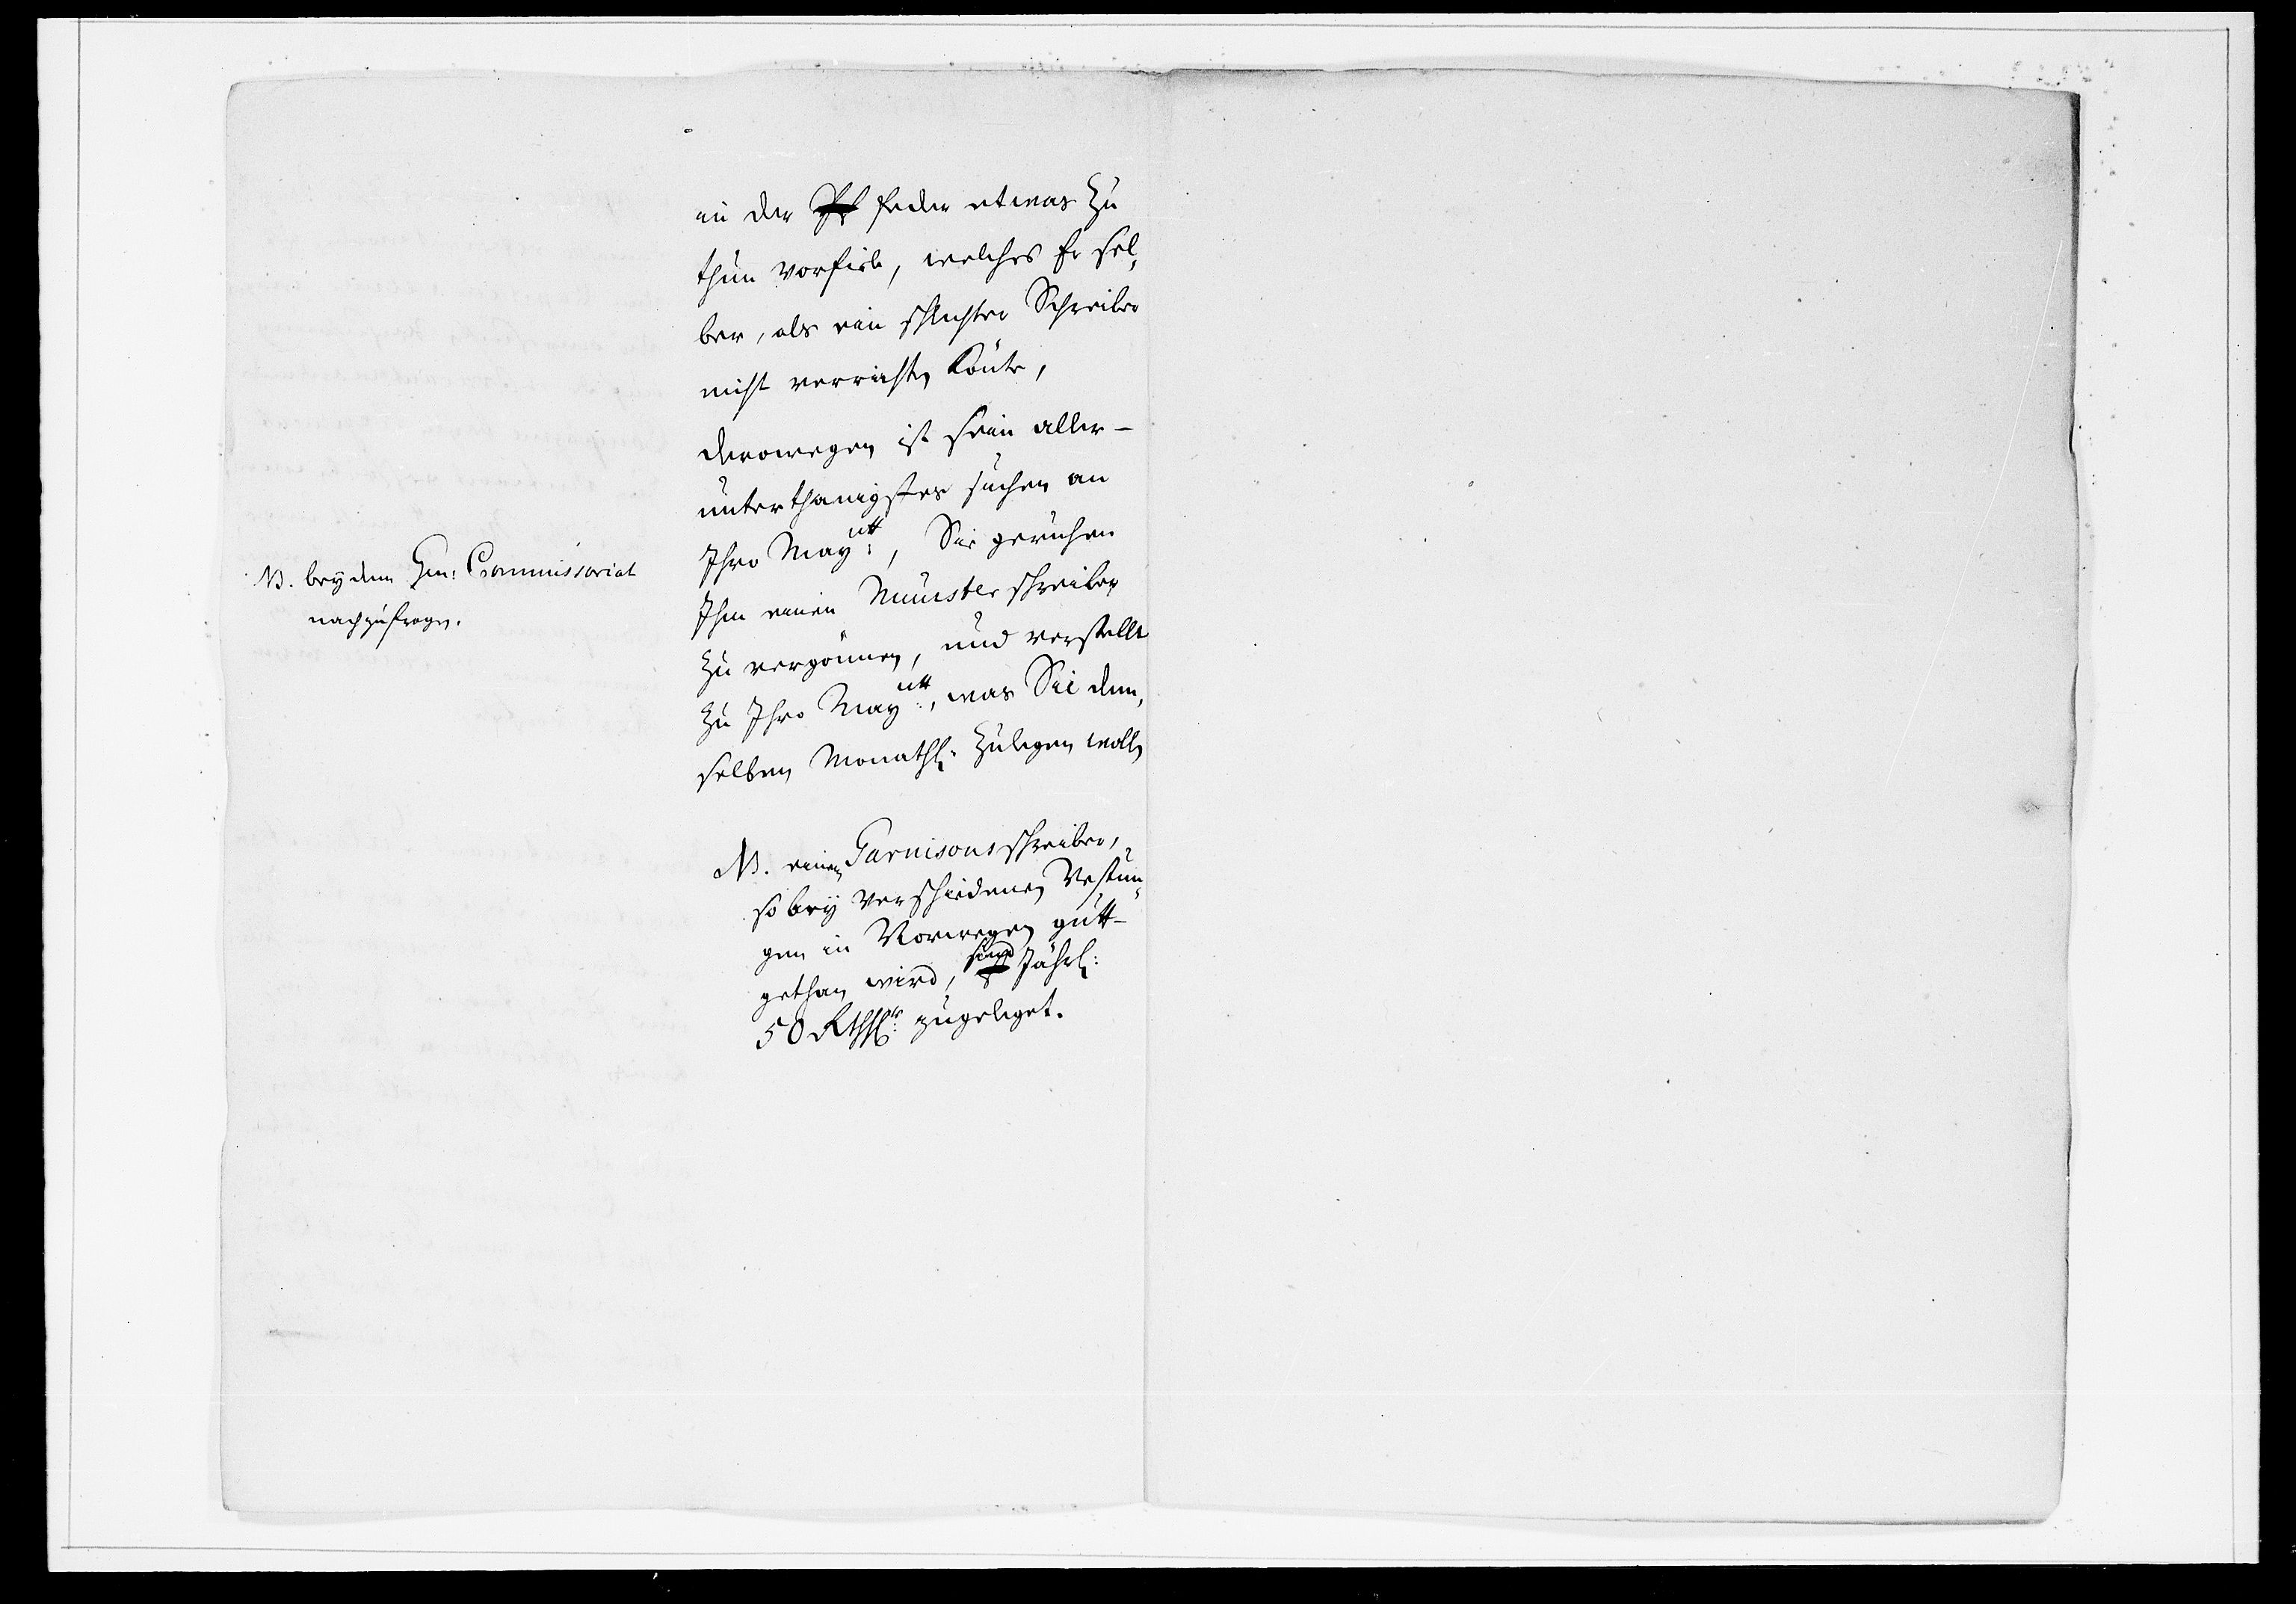 in der feder etwas zu
thun vorfiele, welches Er sel,
ber, als ein schlechter Schreiber
nicht verrichten könte,
derowegen ist sein aller-
unterthänigstes suchen an
Ihro Maytt:, Sie geruhen
Ihm einen Münsterschreiber
zu vergönnen, und verstellt
zu Ihro Maytt:, was Sie dem,
selben Monathl: zulegen wollen
NB. bey dem Gen: Commissariat
nachzufragen.
NB. einem Garnisonsschreiber,
so bey verschiedenen Vestun,
gen in Norwegen gutt-
gethan wird, sind Jährl:
50 Rthlr: zugeleget.